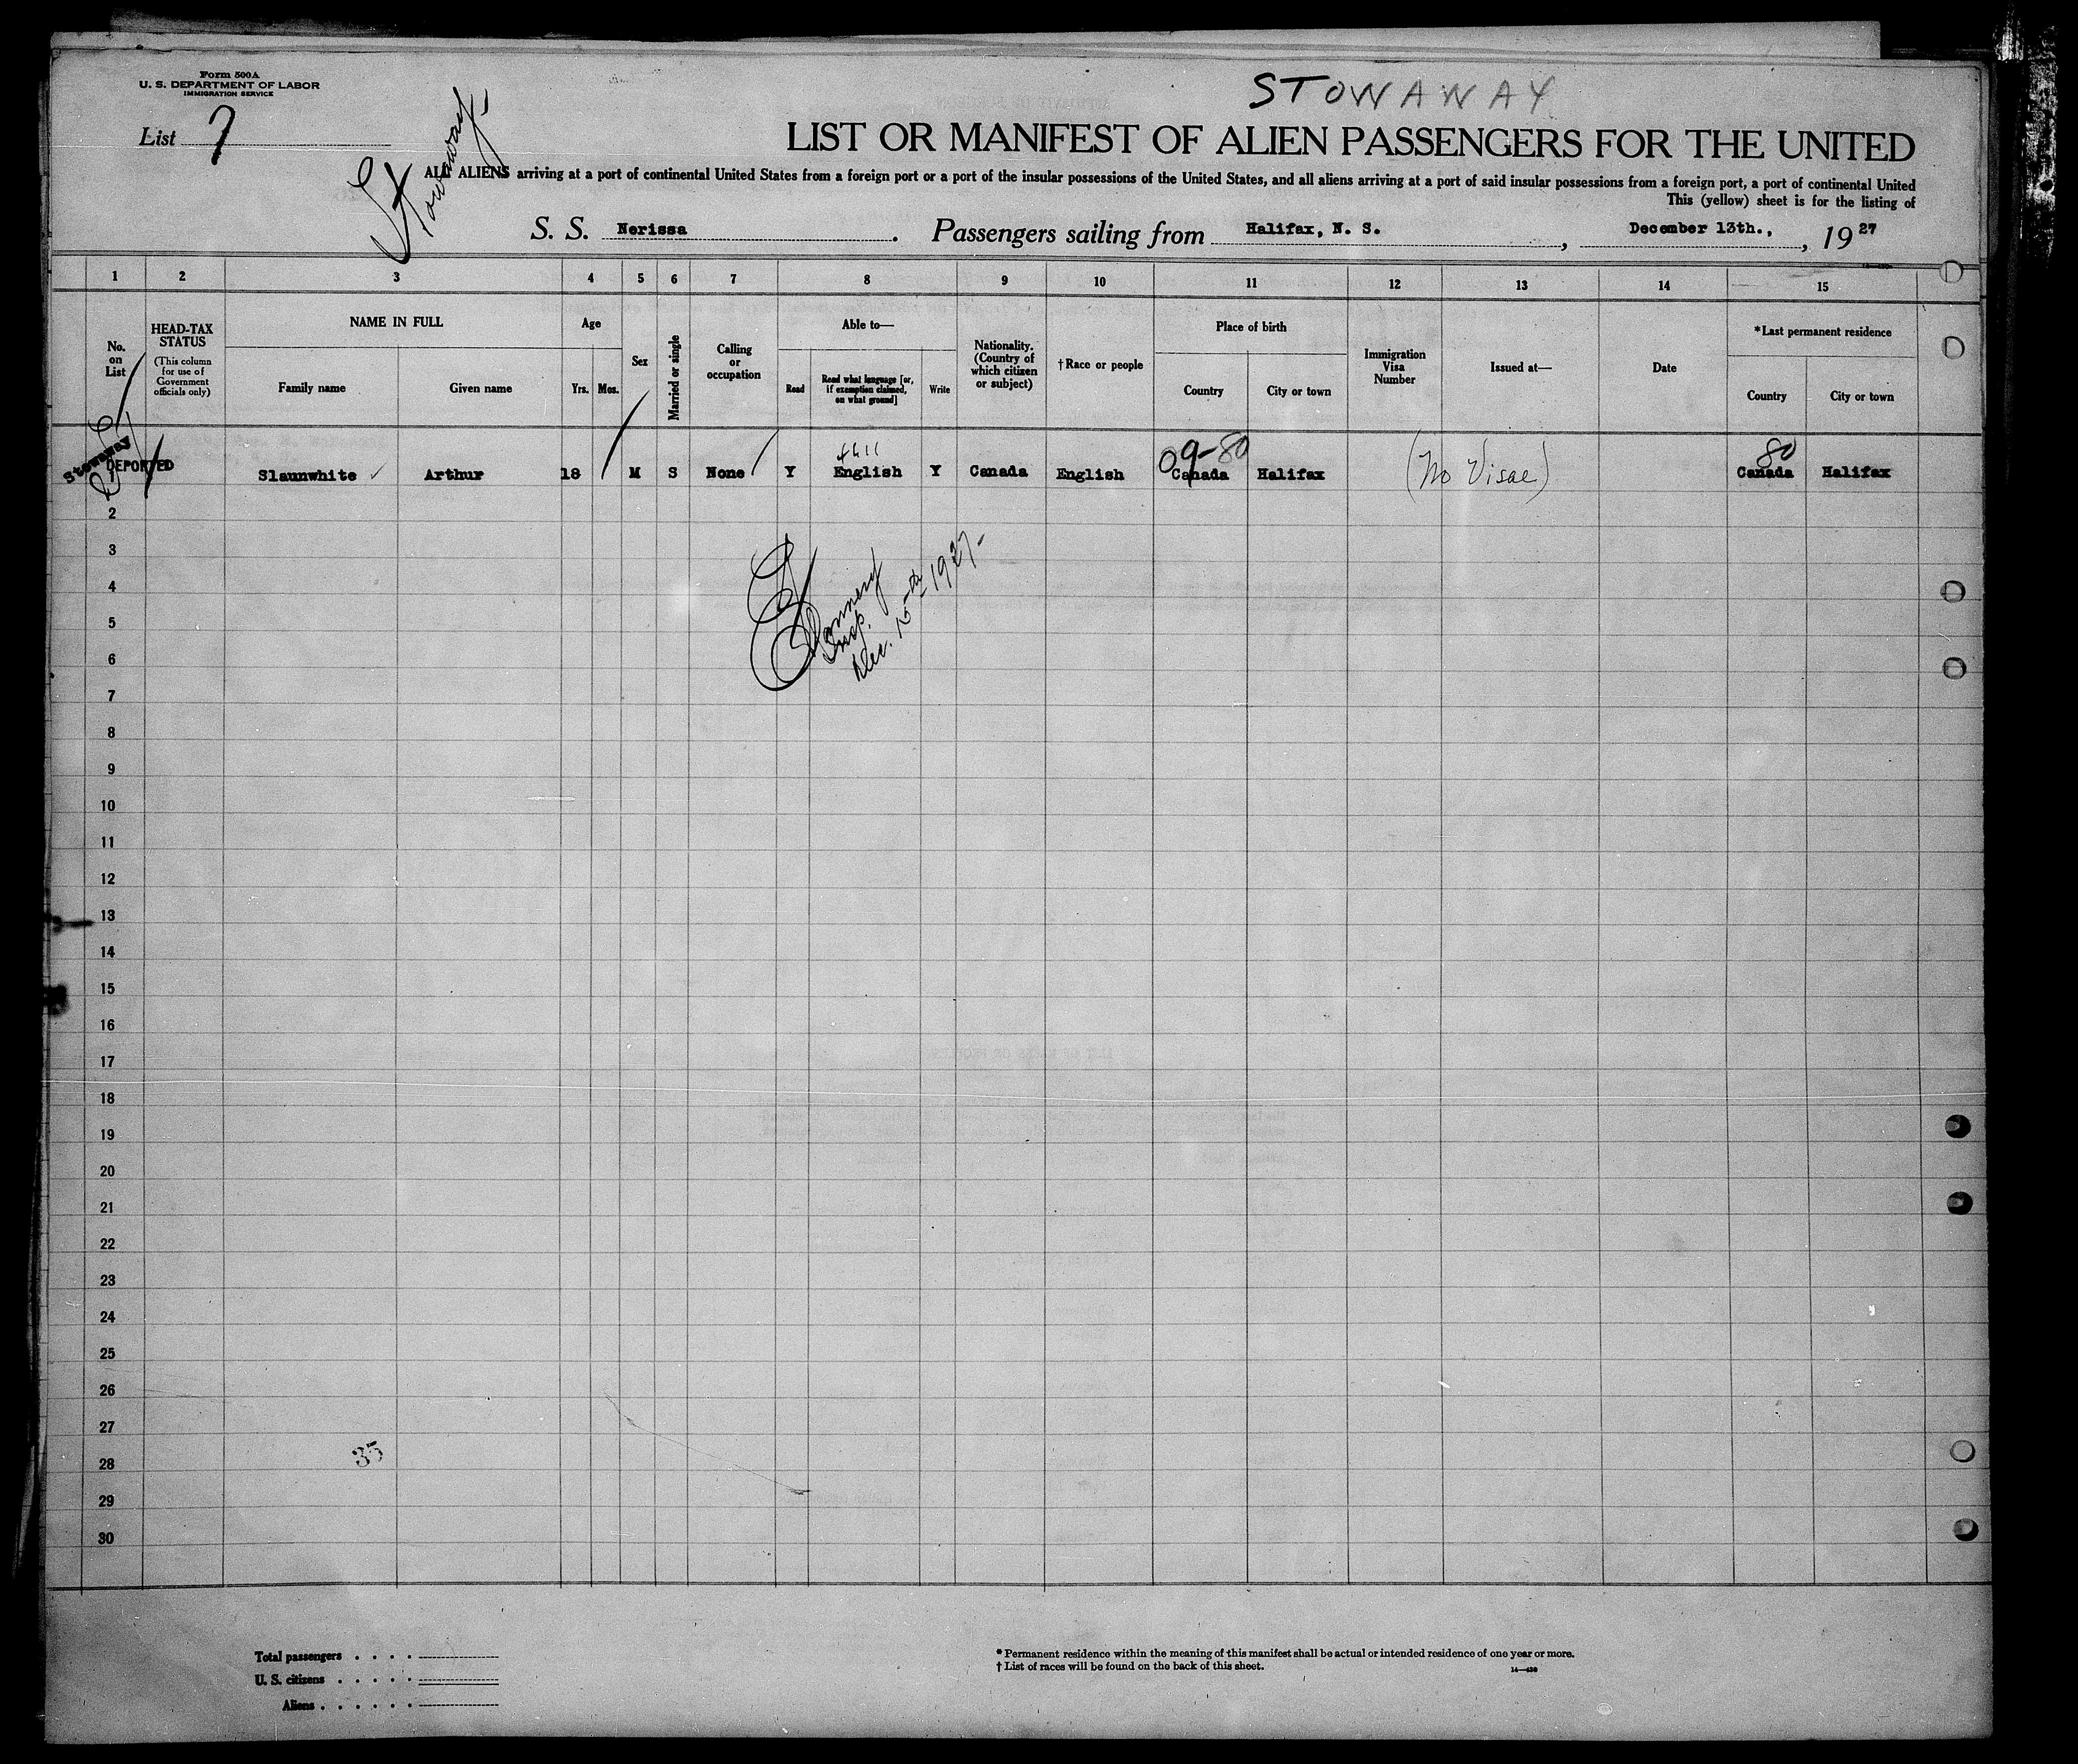 Form 500A
U. S. DEPARTMENT OF LABOR
IMMIGRATION SERVICE
List 7
Stowaway
STOWAWAY
LIST OR MANIFEST OF ALIEN PASSENGERS FOR THE UNITED
ALL ALIENS arriving at a port of continental United States from a foreign port or a port of the insular possessions of the United States, and all aliens arriving at a port of said insular possessions from a foreign port, a port of continental United
This (yellow) sheet is for the listing of
S. S. Nerissa. Passengers sailing from Halifax, N. S., December 13th., , 1927
1 2 3 4 5 6 7 8 9 10 11 12 13 14 15
No. on List
HEAD-TAX STATUS
(This column for use of Government officials only)
NAME IN FULL
Family name Given name
Age
Yrs. Mos.
Sex
Married or single
Calling or occupation
Able to—
Read
Read what language [or, if exemption claimed, on what ground]
Write
Nationality. (Country of which citizen or subject)
†Race or people
Place of birth
Country City or town
Immigration Visa Number
Issued at—
Date
*Last permanent residence
Country City or town
Stowaway
DEPORTED
09-80 80
Slaunwhite Arthur 18 M S None Y English Y Canada English Canada Halifax (No Visae) Canada Halifax
2
3
4
5
6
Insp.
Dec. 15th 1927-
7
8
9
10
11
12
13
14
15
16
17
18
19
20
21
22
23
24
25
26
27
35
28
29
30
Total passengers . . . .
U. S. citizens . . . . .
Aliens . . . . . .
* Permanent residence within the meaning of this manifest shall be actual or intended residence of one year or more.
† List of races will be found on the back of this sheet.